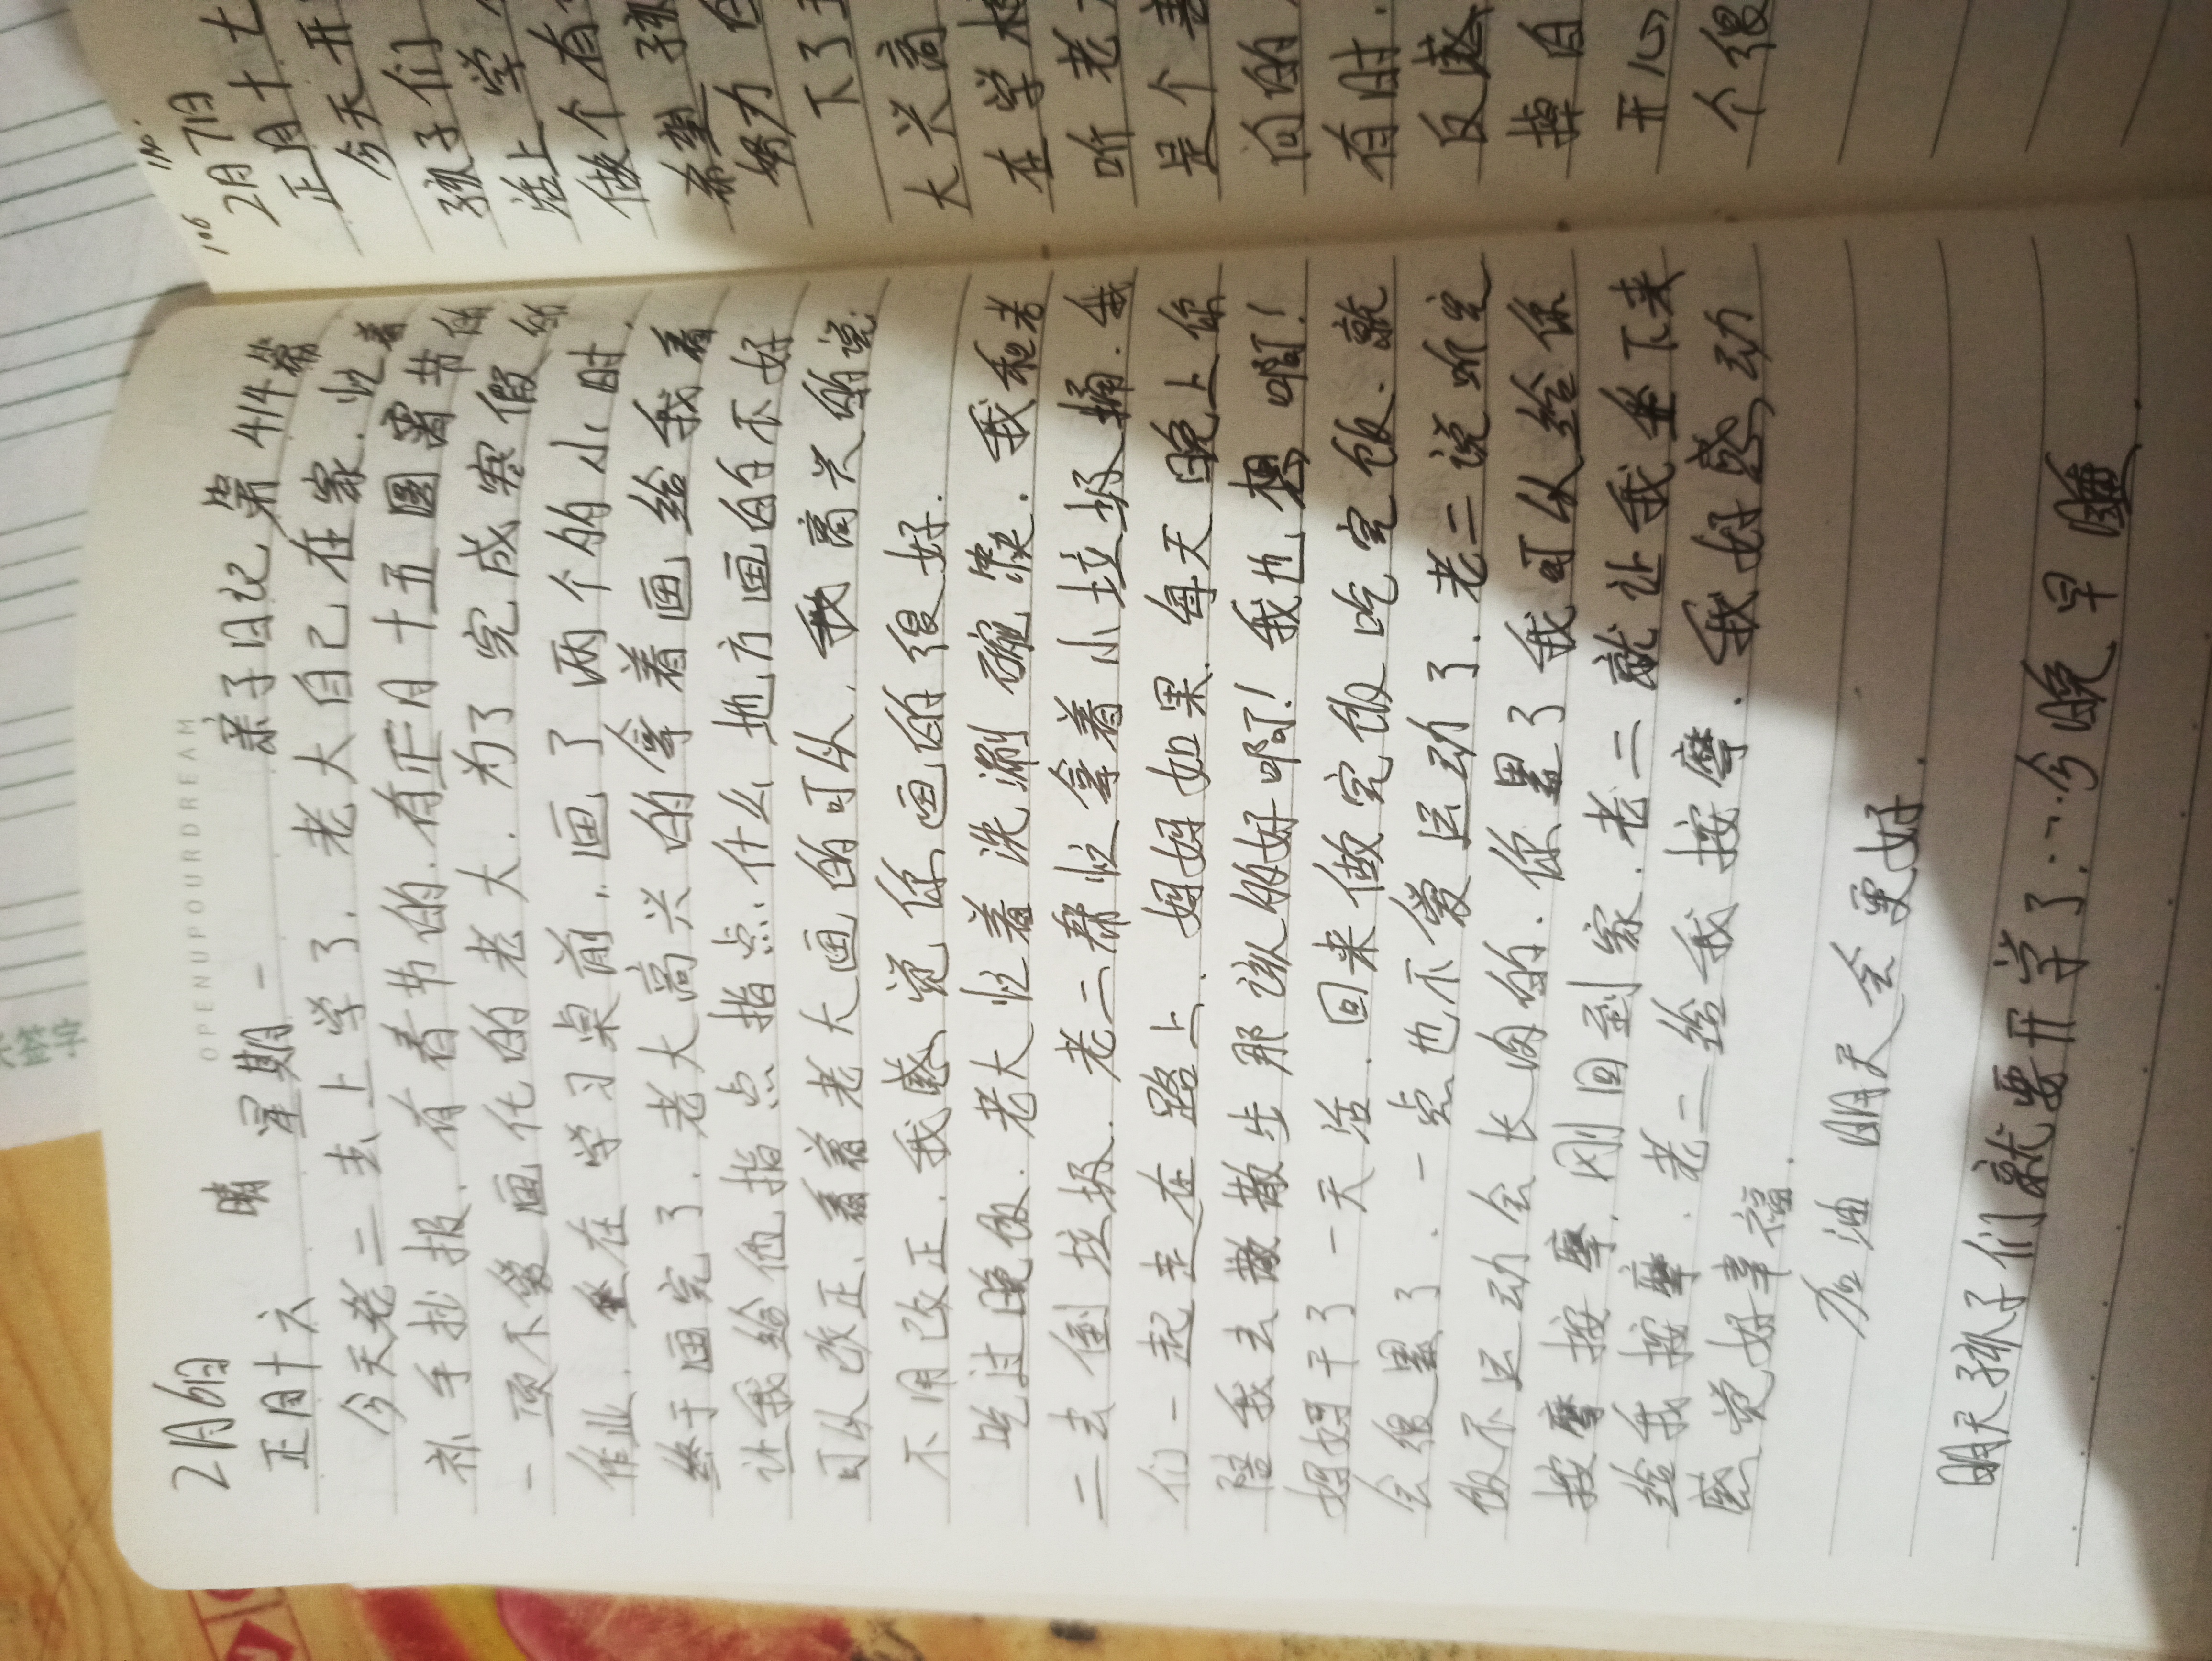 OPENUPOURDREAM
2月6日 晴 星期一 亲子日记 第414篇
正月十六
今天老二去上学了.老大自己在家.忙着
补手抄报.有春节的.有正月十五圆宵节的
一项不爱画化的老大.为了完成寒假的
作业.坐在学习桌前..画了两个的小时.
终于画完了.老大高兴的拿着画给我看
让我给他指点指点.什么地方画的不好
可以改正、看着老大画的可以.我高兴的说.
不用改正.我感觉你画的很好.
吃过晚饭.老大忙着洗涮碗筷.我和老
二去倒垃圾.老二帮忙拿着小垃圾桶.我
们一起走在路上.妈妈如果每天晚上你
陪我去散散步那该的好啊!我也想啊!
妈妈干了一天活.回来做完饭吃完饭.就
会很累了.一点也不爱运动了.老二说吃完
饭不运动会长肉的.你累了我可以给你
按摩按摩.刚回到家.老二就让我坐下来
给我按摩.老二给我按摩.我好感动
感觉好幸福.
加油明天会更好
明天孩子们就要开学了...今晚早睡.
106 No.
2月7日
正月十七
今天开
孩子们
活上学
做个有
希望孩
努力
下了
大兴高
在学
听老
是个
向的
有时.
反
掉自
开心
个很